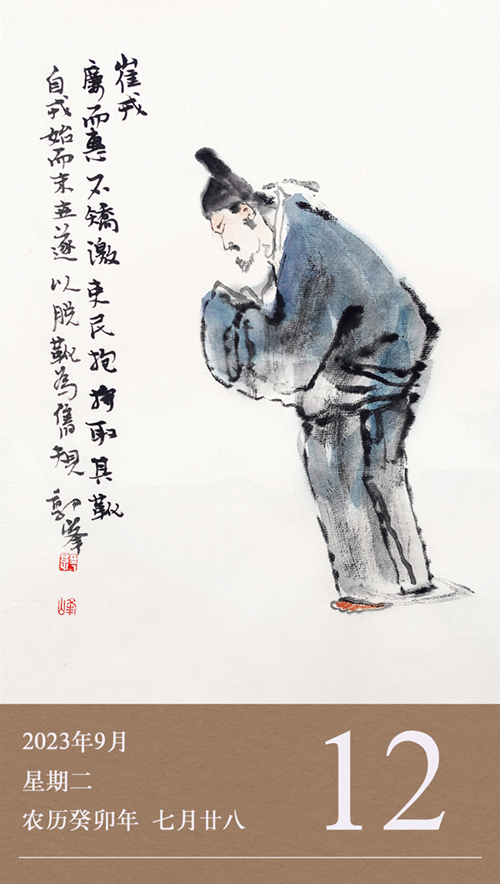 崔戎
廉而惠不矯激吏民抱持取其靴
自戎始而末世遂以脱靴為舊規 郭峯
峰
2023年9月
星期二
农历癸卯年 七月廿八
12